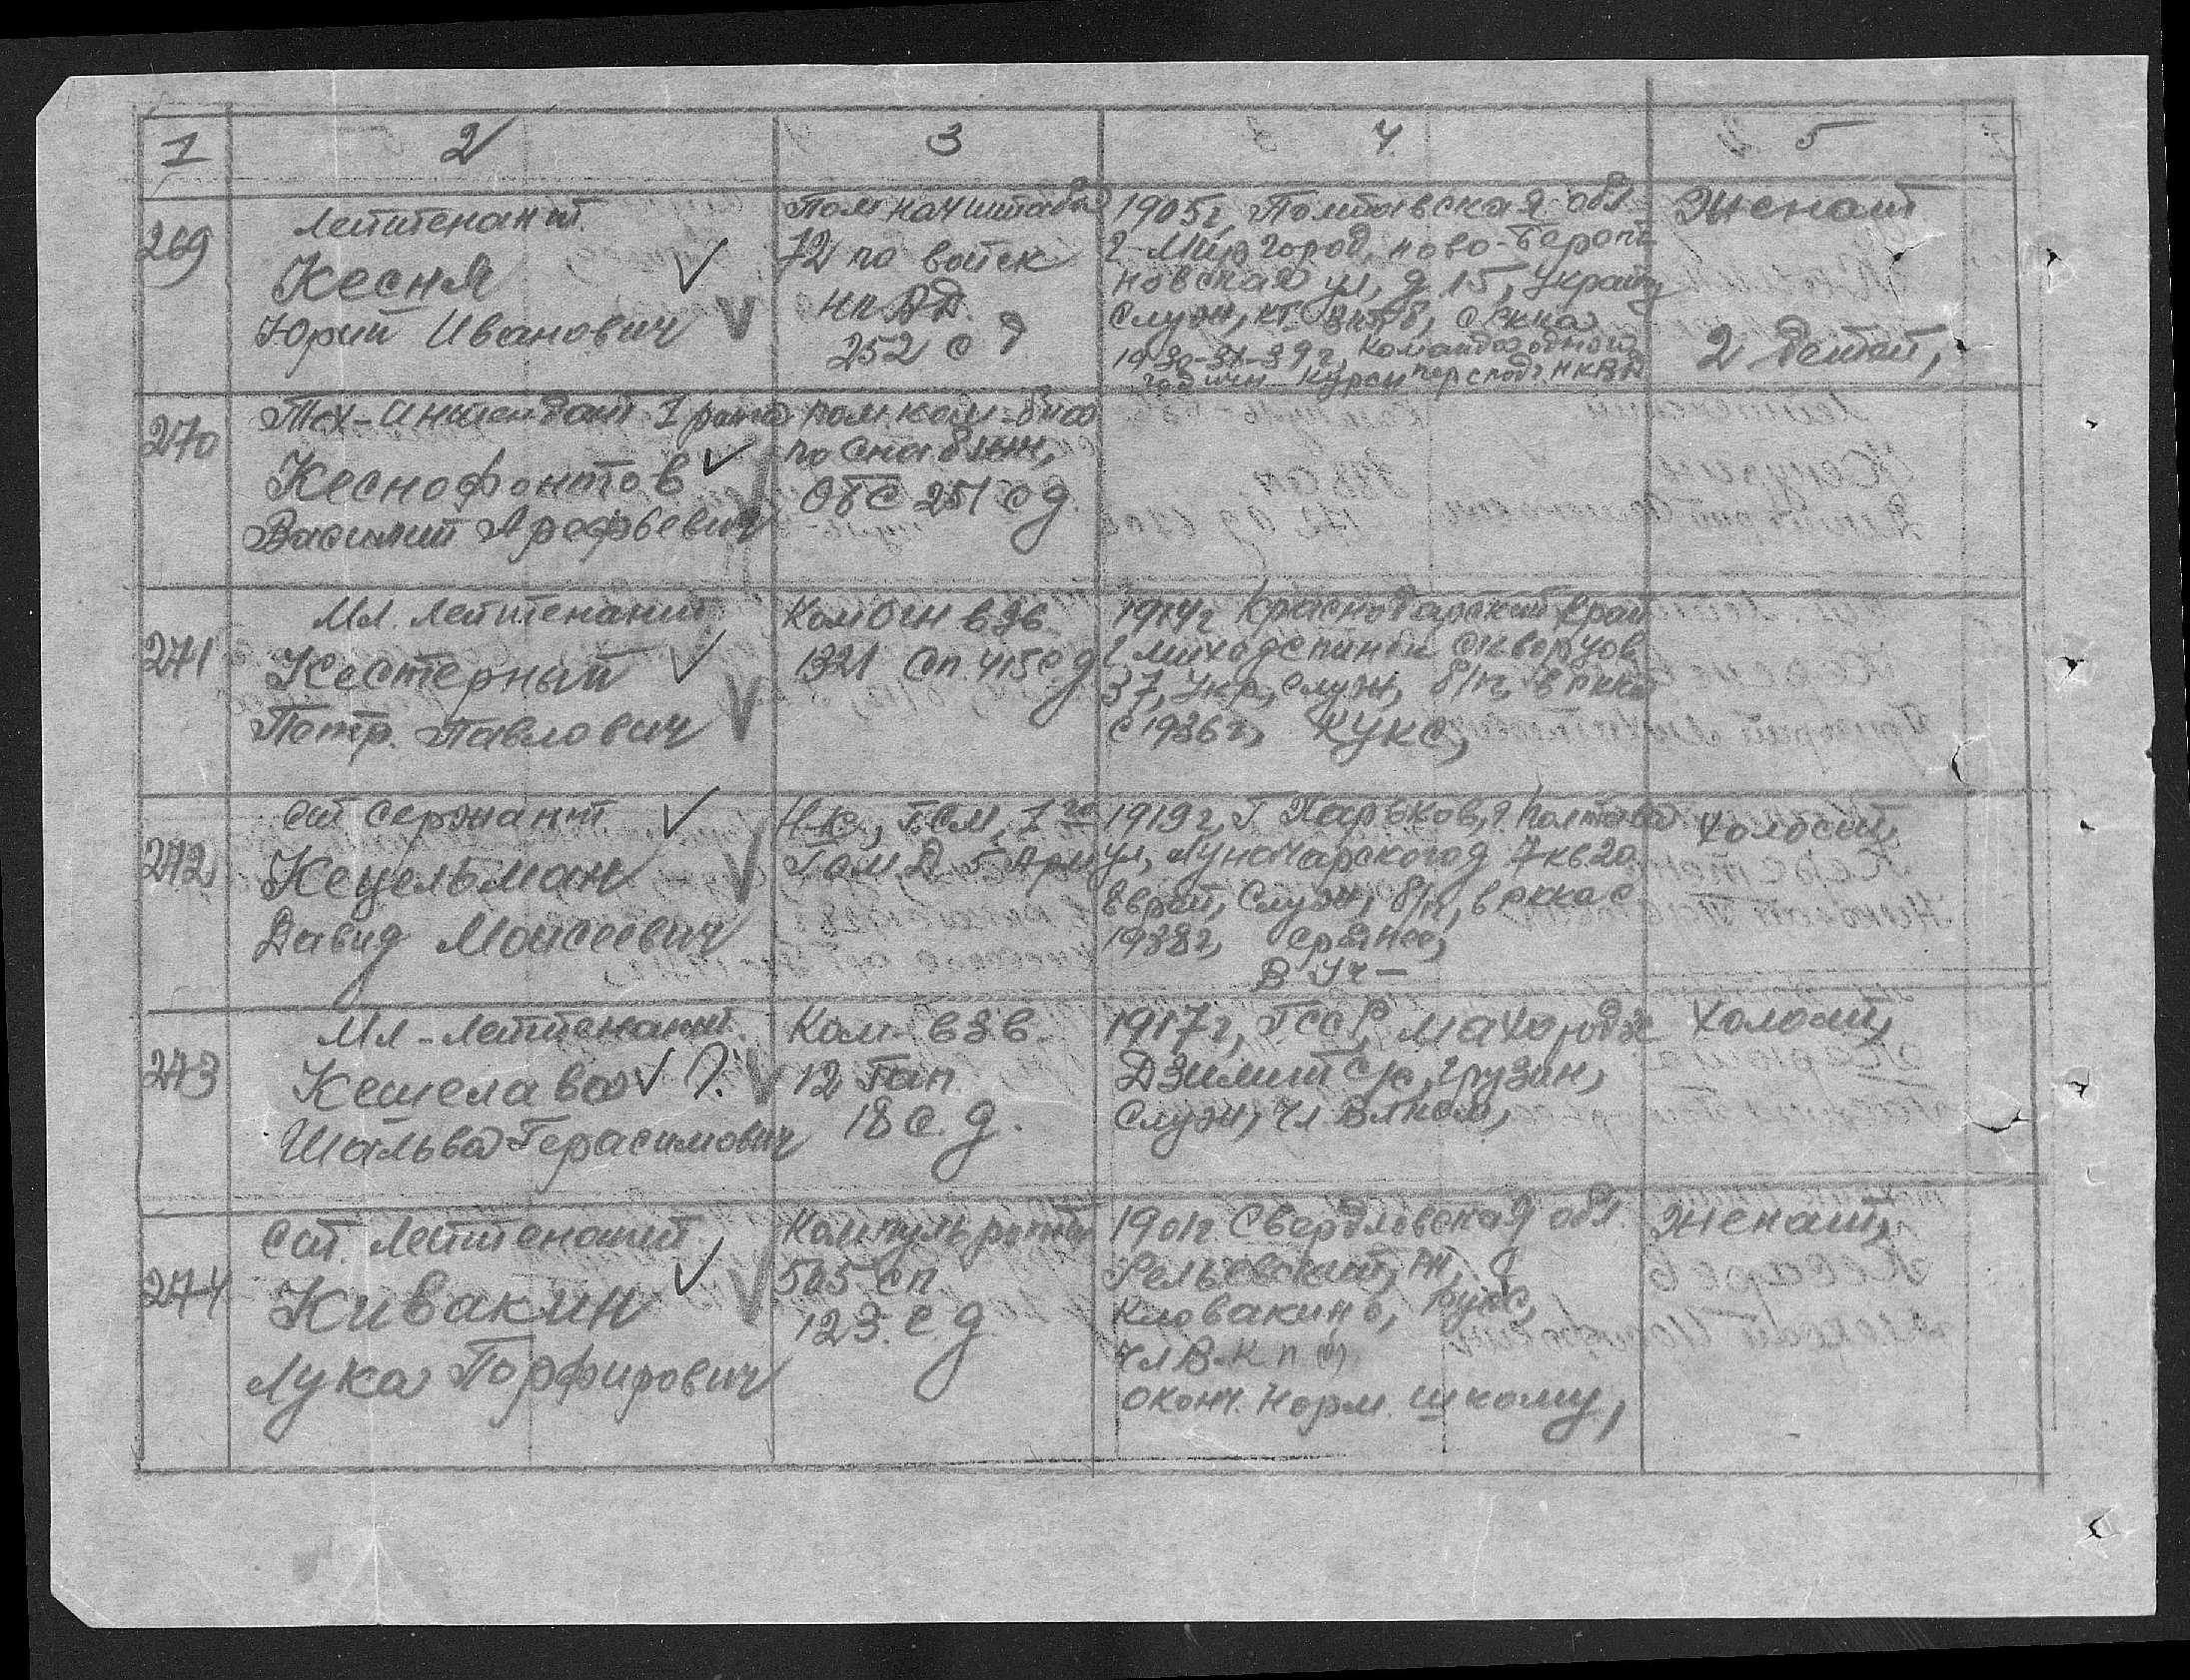 1 2 3 4 5
269
Лейтенант
Кесня
Юрий Иванович
Пом нач штаба
12 по войск
252 с д
1905г, Полтавская обл
г-Миргород, ново-
новская ул, д 15, Украин
Служ,
1930-31-39г,
Женат
2 детей,
270
Тех-Интендант I ранга
Кеснофонтов
Василий Арефьевич
пом. ком. б-на
по снабжен,
ОБС 251 с д.
271
Мл. Лейтенант
Кестерный
Петр. Павлович
Ком огн взв.
1321 сп. 415 с. д
1914г Краснодарский край
37, Укр, служ, б/п, в ркка
с 1936г, КУКС,
272
ст сержант
Кецельман
Давид Моисеевич
5 Арм
1919г, г Харьков, г. Полтава
ул, Луначарского д 7 кв 20
еврей, Служ, б/п, в ркка с
1938г, среднее,
В Уч-
Холост,
273
Мл-лейтенант.
Кешелава Л.
Шальва Герасимович
Ком-взв.
12 гап
18 с. д.
1917г, ГССР, Махорадзе
Дзимит с/с, грузин,
Служ, чл влксм,
Холост,
274
Ст. Лейтенант.
Кивакин
Лука Порфирович
Ком пуль роты
505 сп
123. с. д
1901г Свердловская обл.
рн, д
Русс,
чл В. К п (б)
оконч. Норм. школу,
Женат,